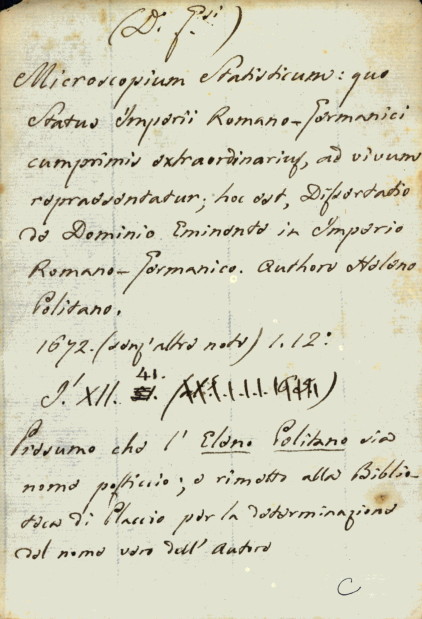 (D. Gsi.)
Microscopium Statisticum: quo
Status Imperii Romano-Germanici
cumprimis extraordinarius, ad vivum
repraesentatur; hoc est, Dissertatio
de Dominio Eminente in Imperio
Romano-Germanico. Authore Heleno
Politano.
1672. (senz' altre note) 1. 12:
41.
J.' XII.
Presumo che l' Eleno Politano sia
nome posticcio; e rimetto alla Biblio-
teca di Placcio per la determinazione
del nome vero dell' Autore
C